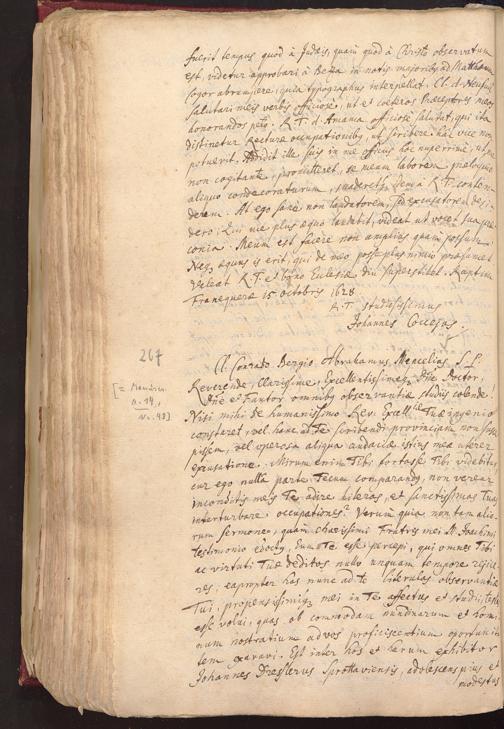 fuerit tempus quod à Judæis, quam quod à Christo observatum
est, videtur approbari à Beza in notis majoribus ad Matthæum
cogor abrumpere, quia typographus interpellat. Cl. d.
salutari meis verbis officiose, ut et cœteros Præceptores meos
honorandos peto. R. T. d. Amama officiose salutat, qui ita
distinetur Recturæ occupationibus, ut scribere hac vice non
potuerit. Addidit ille suis in me officiis hoc nuperrime, ut
non cogitante, promitteret, se meum laborem
aliquo condecoraturum,
derem. At ego sane non laudatorem, sed excusatorem desi-
dero: Qui me plus æquo laudabit, videat ut
conia. Meum est facere non amplius quam possum.
Neque æquus is erit, qui de meo posse plus nimio præsumet
Valeat R. T. et bono Eclesiæ diu supersitet. Raptim
Franequeræ 15 octobris 1628.
R. T. studiosissimus
Johannes Coccejus.
267
Cl. Conrado Bergio Abrahamus Mencelius S. P.
[= Mencelius
Reverende, Clarissime, Excellentissimeque Dne Doctor,
Dne et Fautor omnibus observantiæ studiis colende.
No. 48]
Nisi mihi de humanissimo Rev. Excell. Tuæ ingenio
constaret, vel hanc ad te scribendi provinciam non
pissem, vel operosa aliqua audaciæ istius meæ uterer
excusatione. Mirum enim Tibi fortasse Tibi videbitur
cur ego nulla parte Tecum comparandus, non verear
inconditis meis Te adire literas, et sanctissimas Tuas
interturbare occupationes? Verum quia non tam alio-
rum sermone, quam charissimi Fratris mei M. Joachimi
testimonio edoctus, Eum Te esse percepi, qui omnes Tibi
ac virtuti Tuæ deditos nullo unquam tempore rejice-
res; eapropter has nunc ad te literulas observantiæ
Tui, propensissimique mei in Te affectus et studii, testes
esse volui, quas ob commodam nundinarum et homi-
num nostratium ad vos proficiscentium oportunita-
tem exaravi. Est inter hos et harum exhibitor
Johannes Dresslerus Sprottaviensis, adolescens pius et
modestus